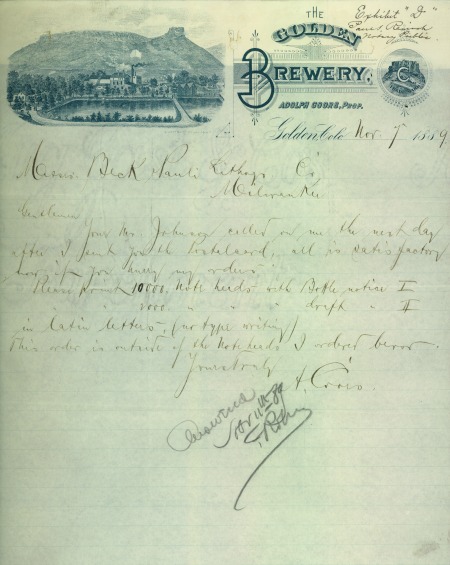 Exhibit "D"
Notary Public
THE
GOLDEN
BREWERY,
C
ADOLPH COORS, PROP.
Golden, Colo. Nov 7 1889
Messrs Beck & Pauli Lithogr Co
Milwaukee
Gentlemen
Your Mr. Johnson called on me the next day
after I sent you the Postalcard, all is satisfactory
now, if you hurry my orders.
Please print 10000 Note heads with Bottle notice I
" " 2000 " " " draft " II
in latin letters, (no type writing)
This order is outside of the Noteheads I ordered before.
Yours truly
A. Coors.
Answered
Nov 11th 89